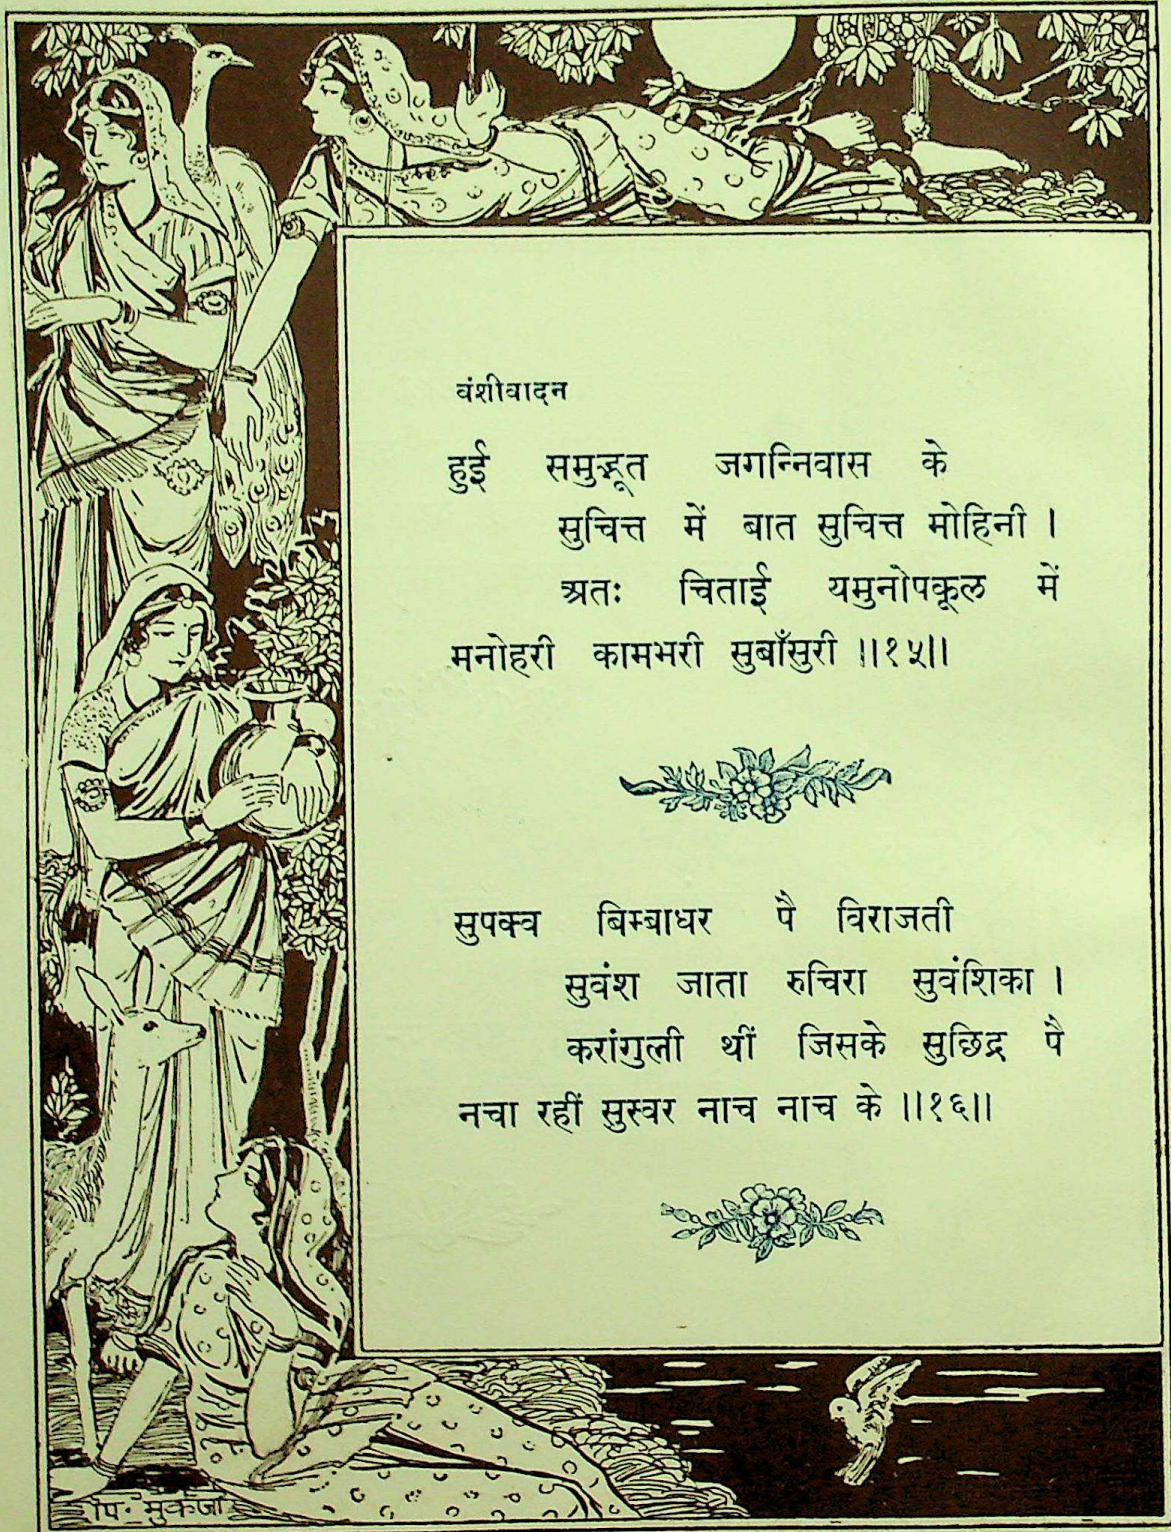 वंशीवादन
हुई समुद्भूत जगन्निवास के
सुचित्त में बात सुचित्त मोहिनी ।
अतः चिताई यमुनोपकूल में
मनोहरी कामभरी सुबाँसुरी ॥१५॥
सुपक्व बिम्बाधर पै विराजती
सुवंश जाता रुचिरा सुवंशिका ।
करांगुली थीं जिसके सुछिद्र पै
नचा रहीं सुस्वर नाच नाच के ॥१६॥
पि॰ मुकर्जी